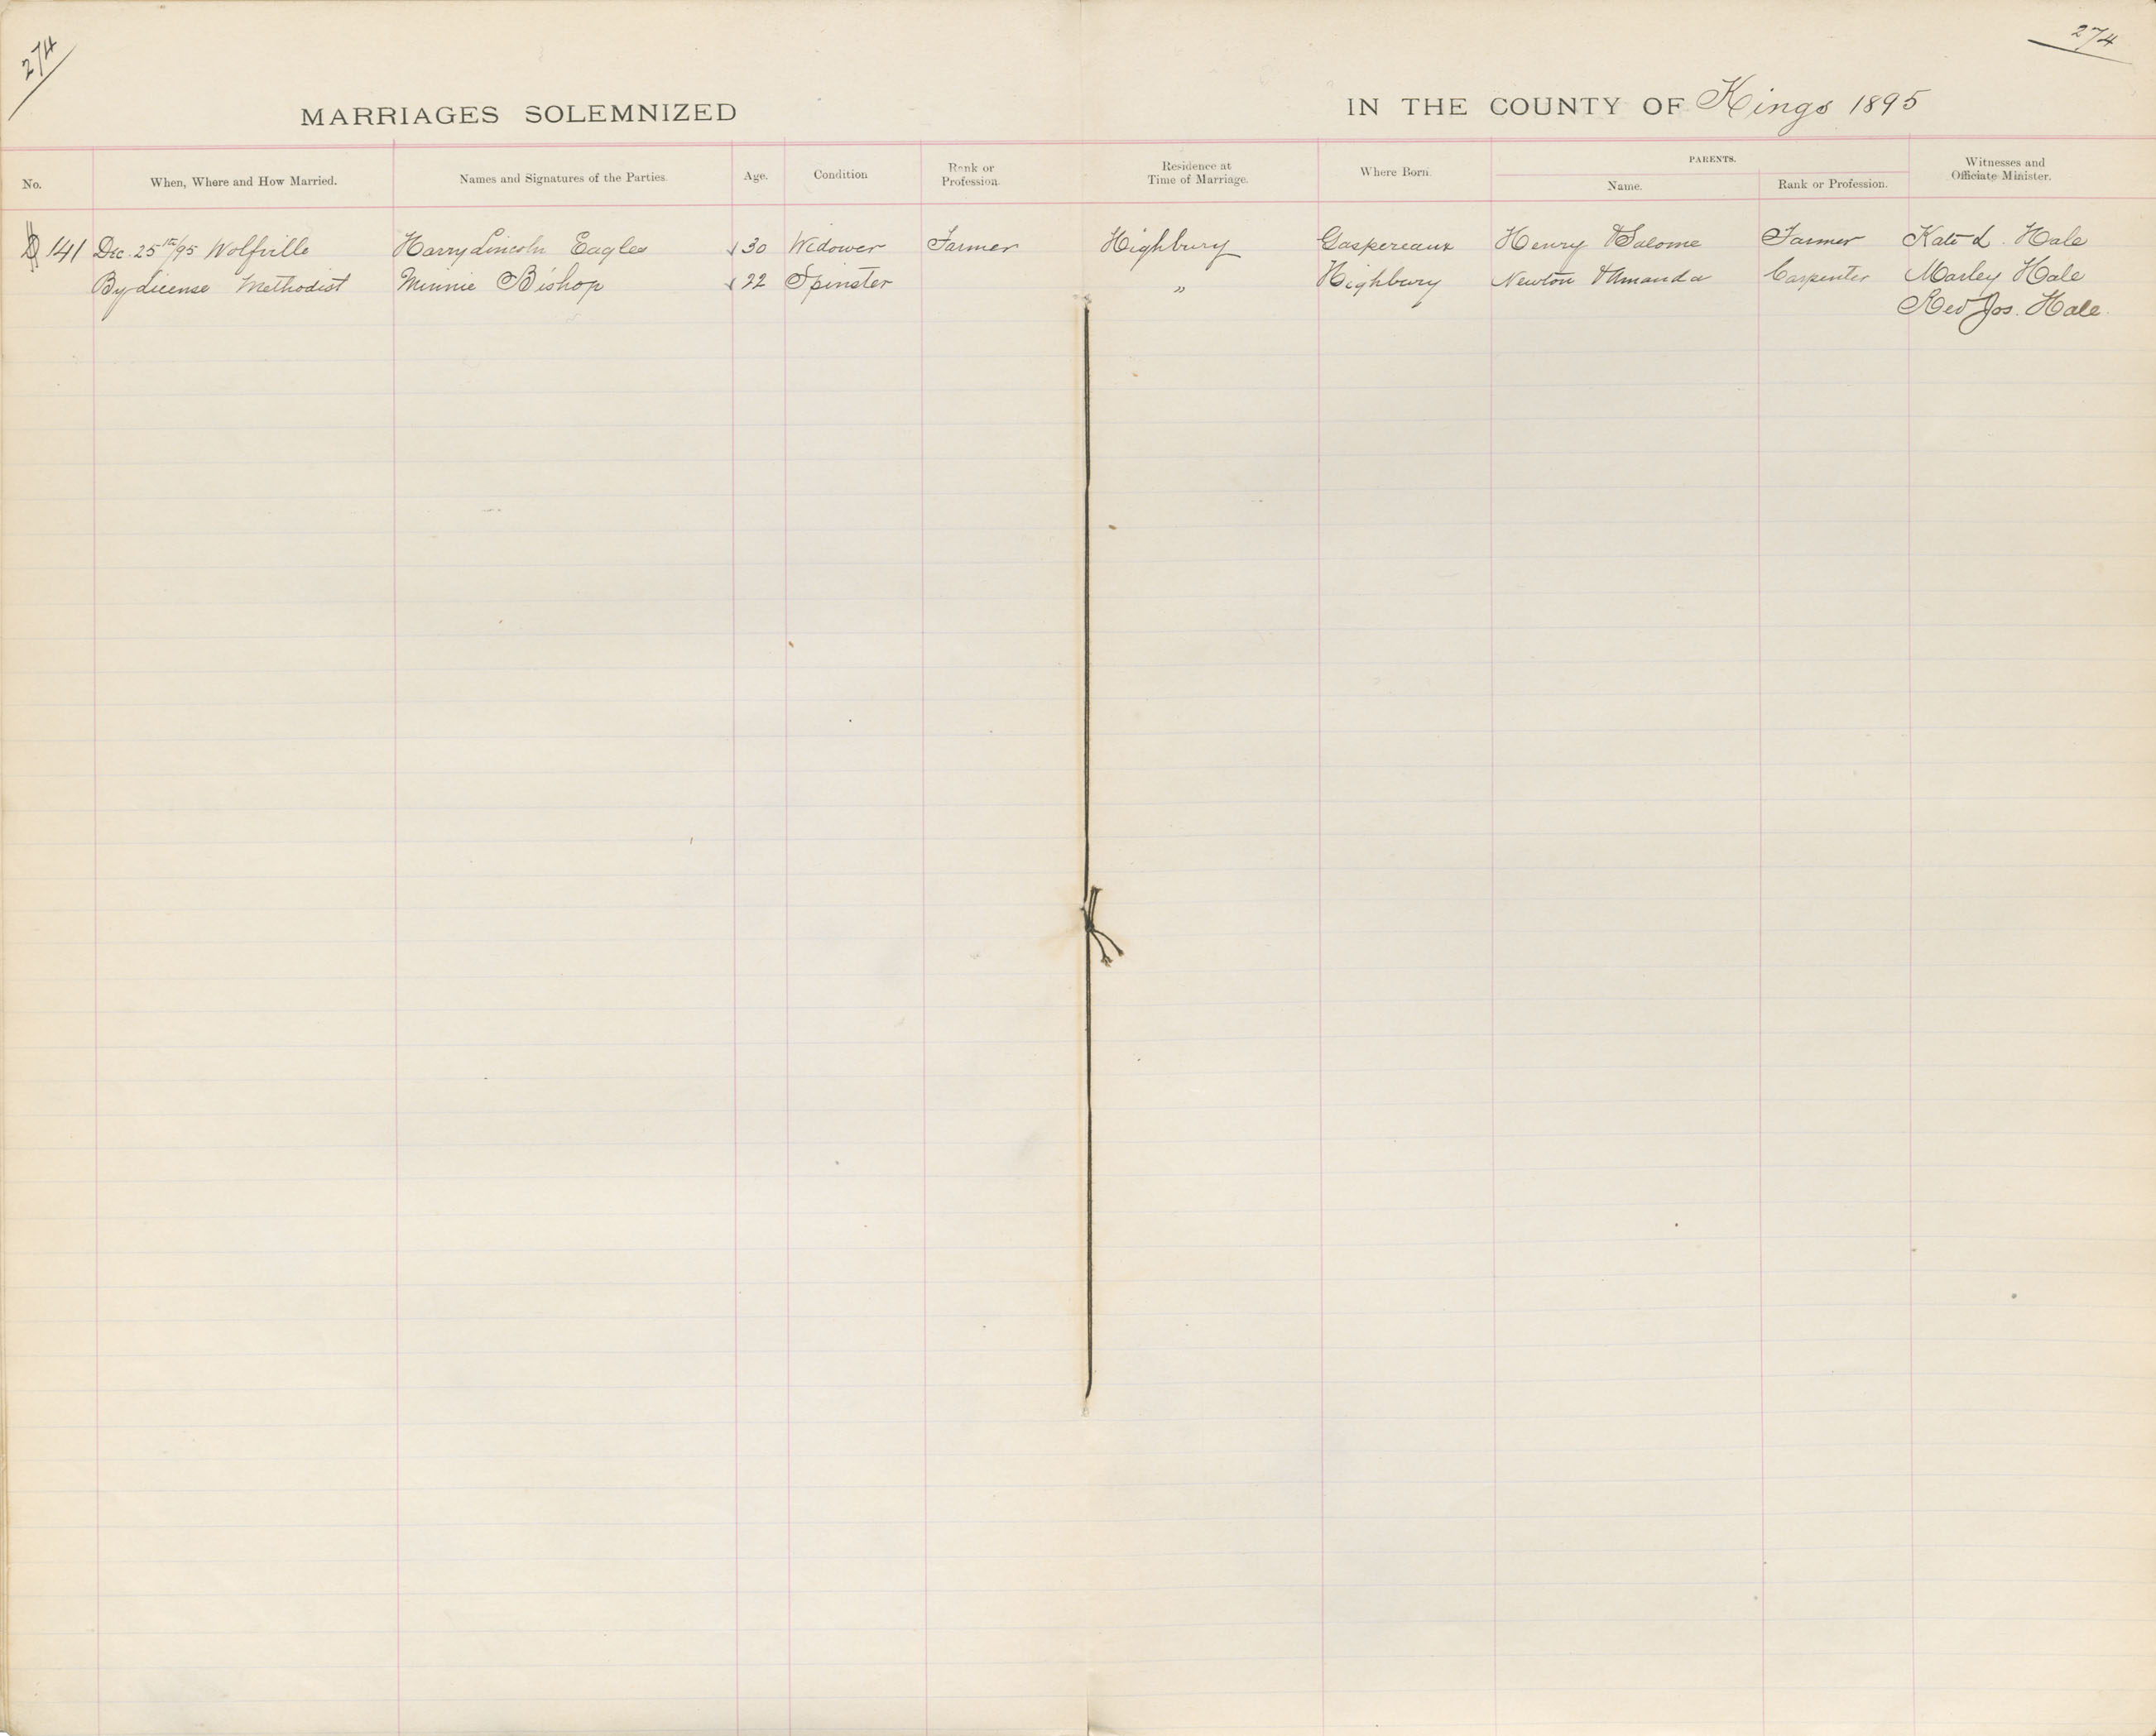 274
274
MARRIAGES SOLEMNIZED IN THE COUNTY OF Kings 1895
No. When, Where and How Married. Names and Signatures of the Parties. Age. Condition Rank or Profession. Residence at Time of Marriage. Where Born. PARENTS. Name. Rank or Profession. Witnesses and Officiate Minister.
141 Dec. 25th/95 Wolfville Harry Lincoln Eagles 30 Widower Farmer Highbury Gaspereaux Henry & Salome Farmer Kate L. Hale
By License Methodist Minnie Bishop 22 Spinster " Highbury Newton & Amanda Carpenter Marley Hale
Rev Jos. Hale.